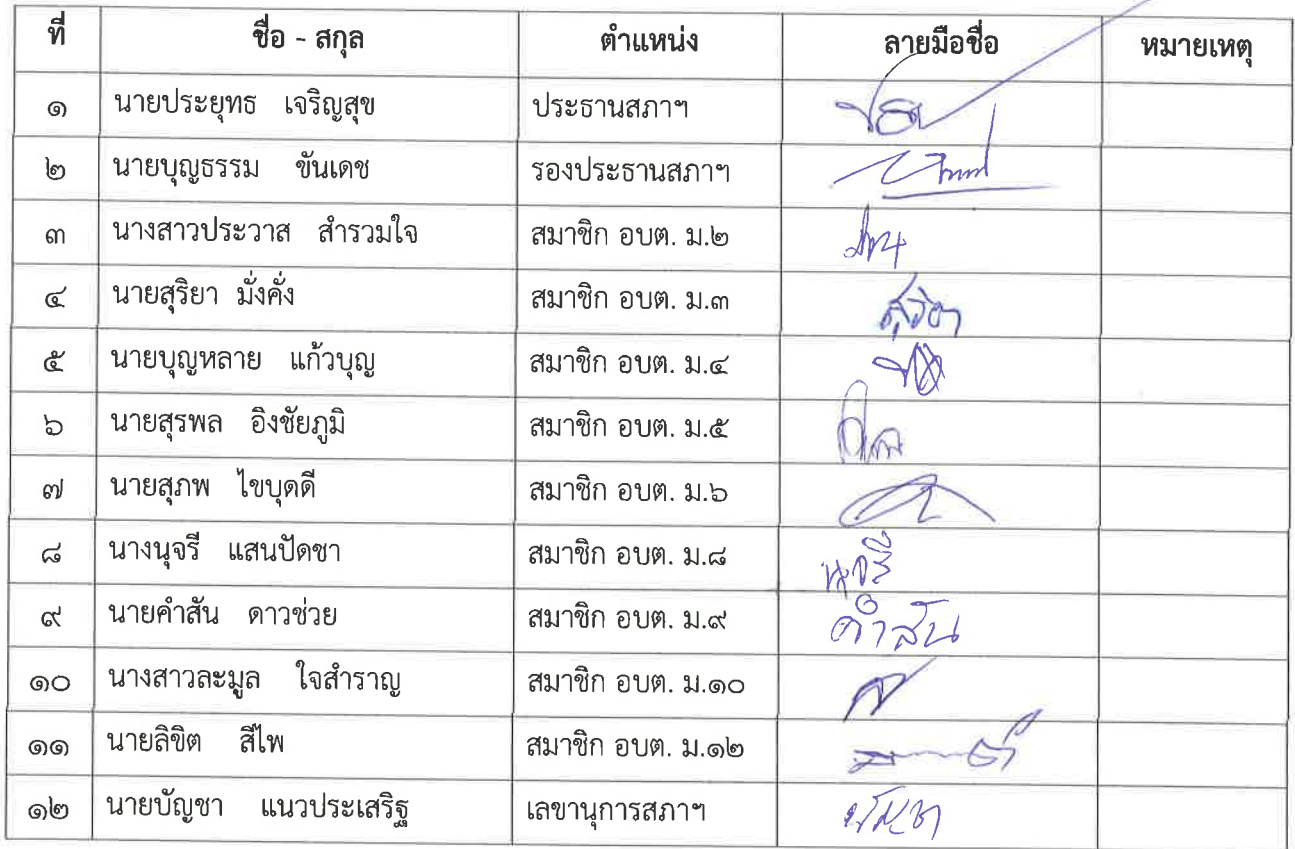 ที่ ชื่อ - สกุล ตำแหน่ง ลายมือชื่อ หมายเหตุ
๑ นายประยุทธ เจริญสุข ประธานสภาฯ
๒ นายบุญธรรม ขันเดช รองประธานสภาฯ
๓ นางสาวประวาส สำรวมใจ สมาชิก อบต. ม.๒
๔ นายสุริยา มั่งคั่ง สมาชิก อบต. ม.๓ สุริยา
๕ นายบุญหลาย แก้วบุญ สมาชิก อบต. ม.๔
๖ นายสุรพล อิงชัยภูมิ สมาชิก อบต. ม.๕
๗ นายสุภพ ไขบุดดี สมาชิก อบต. ม.๖
๘ นางนุจรี แสนปัดชา สมาชิก อบต. ม.๘ นุจรี
๙ นายคำสัน ดาวช่วย สมาชิก อบต. ม.๙ คำสัน
๑๐ นางสาวละมูล ใจสำราญ สมาชิก อบต. ม.๑๐
๑๑ นายลิขิต สีไพ สมาชิก อบต. ม.๑๒
๑๒ นายบัญชา แนวประเสริฐ เลขานุการสภาฯ บัญชา